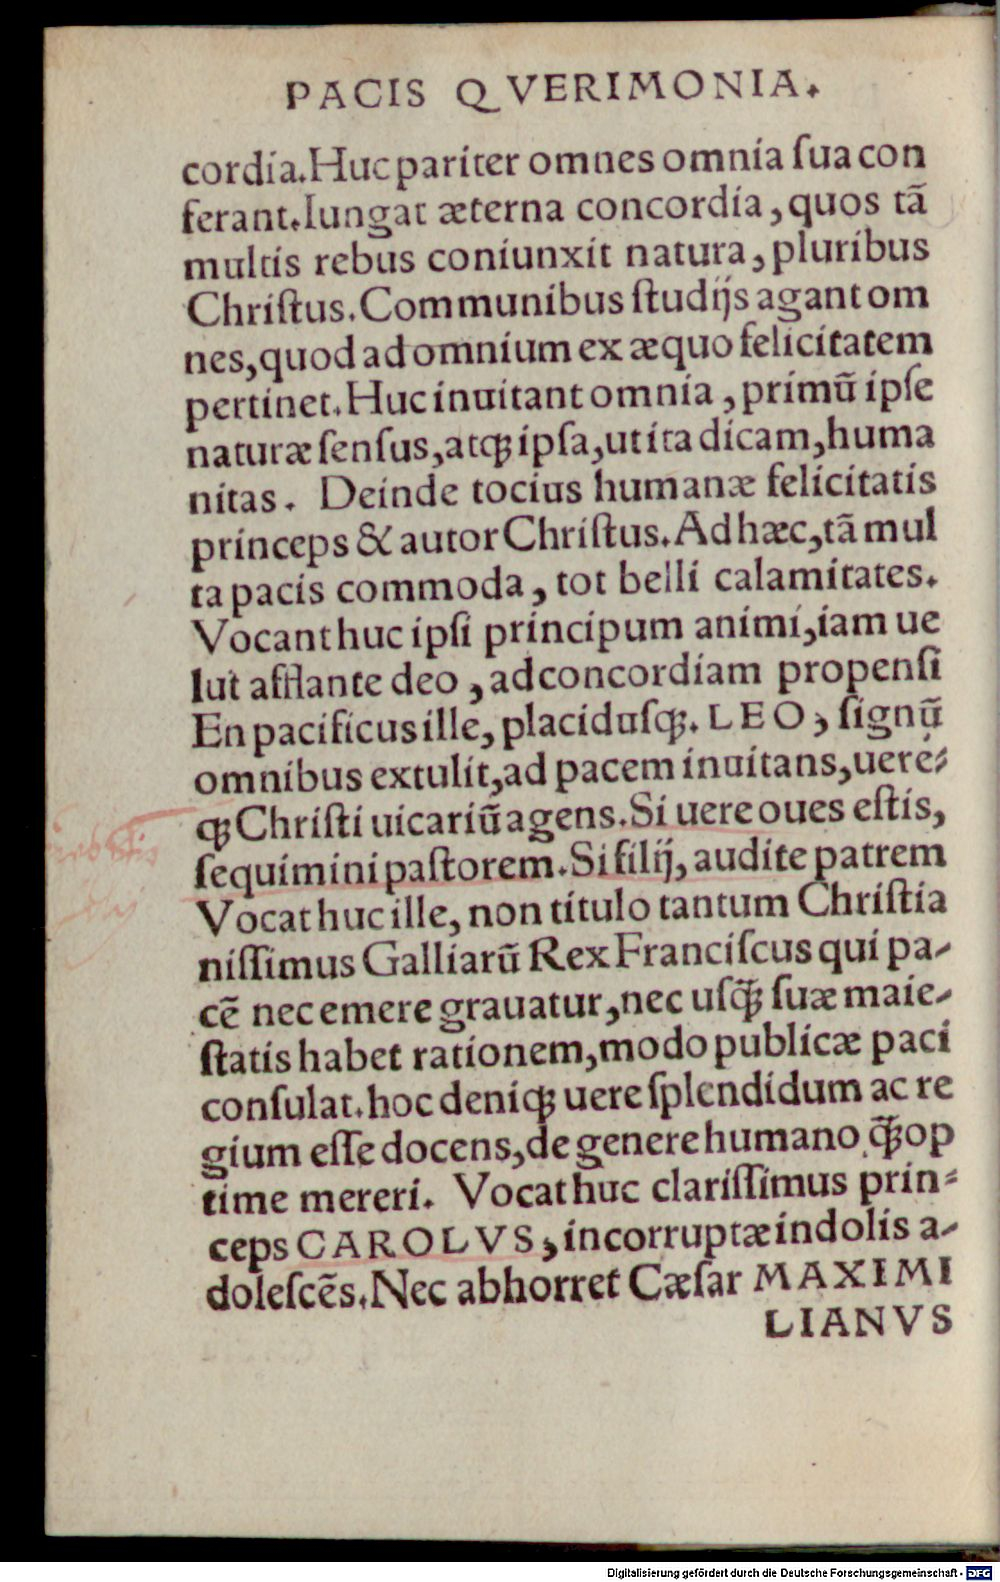 PACIS QVERIMONIA.
cordia.Huc pariter omnes omnia ſua con
ferant.Iungat æterna concordia, quos tā
multis rebus coniunxit natura, pluribus
Chriſtus. Communibus ſtudijs agant om
nes, quod ad omnium ex æquo felicitatem
pertinet. Huc inuitant omnia, primū ipſe
naturæ ſenſus, atqꝫ ipſa, ut ita dicam, huma
nitas. Deinde tocius humanæ felicitatis
princeps & autor Chriſtus. Ad hæc, tā mul
ta pacis commoda, tot belli calamitates.
Vocant huc ipſi principum animi, iam ue
lut afflante deo, ad concordiam propenſi
En pacificus ille, placiduſqꝫ. LEO, ſignū
omnibus extulit, ad pacem inuitans, uere⸗
qꝫ Chriſti uicariū agens. Si uere oues eſtis,
ſequimini paſtorem. Si filij, audite patrem
Vocat huc ille, non titulo tantum Chriſtia
niſſimus Galliarū Rex Franciſcus qui pa-
cē nec emere grauatur, nec uſqꝫ̄ ſuæ maie-
ſtatis habet rationem, modo publicæ paci
conſulat. hoc deniqꝫ uere ſplendidum ac re
gium eſſe docens, de genere humano qꝫ̄ op
time mereri. Vocat huc clariſſimus prin⸗
ceps CAROLVS, incorruptæ indolis a-
doleſcēs. Nec abhorret Cæſar MAXIMI
LIANVS
Digitalisierung gefördert durch die Deutsche Forschungsgemeinschaft - DFG